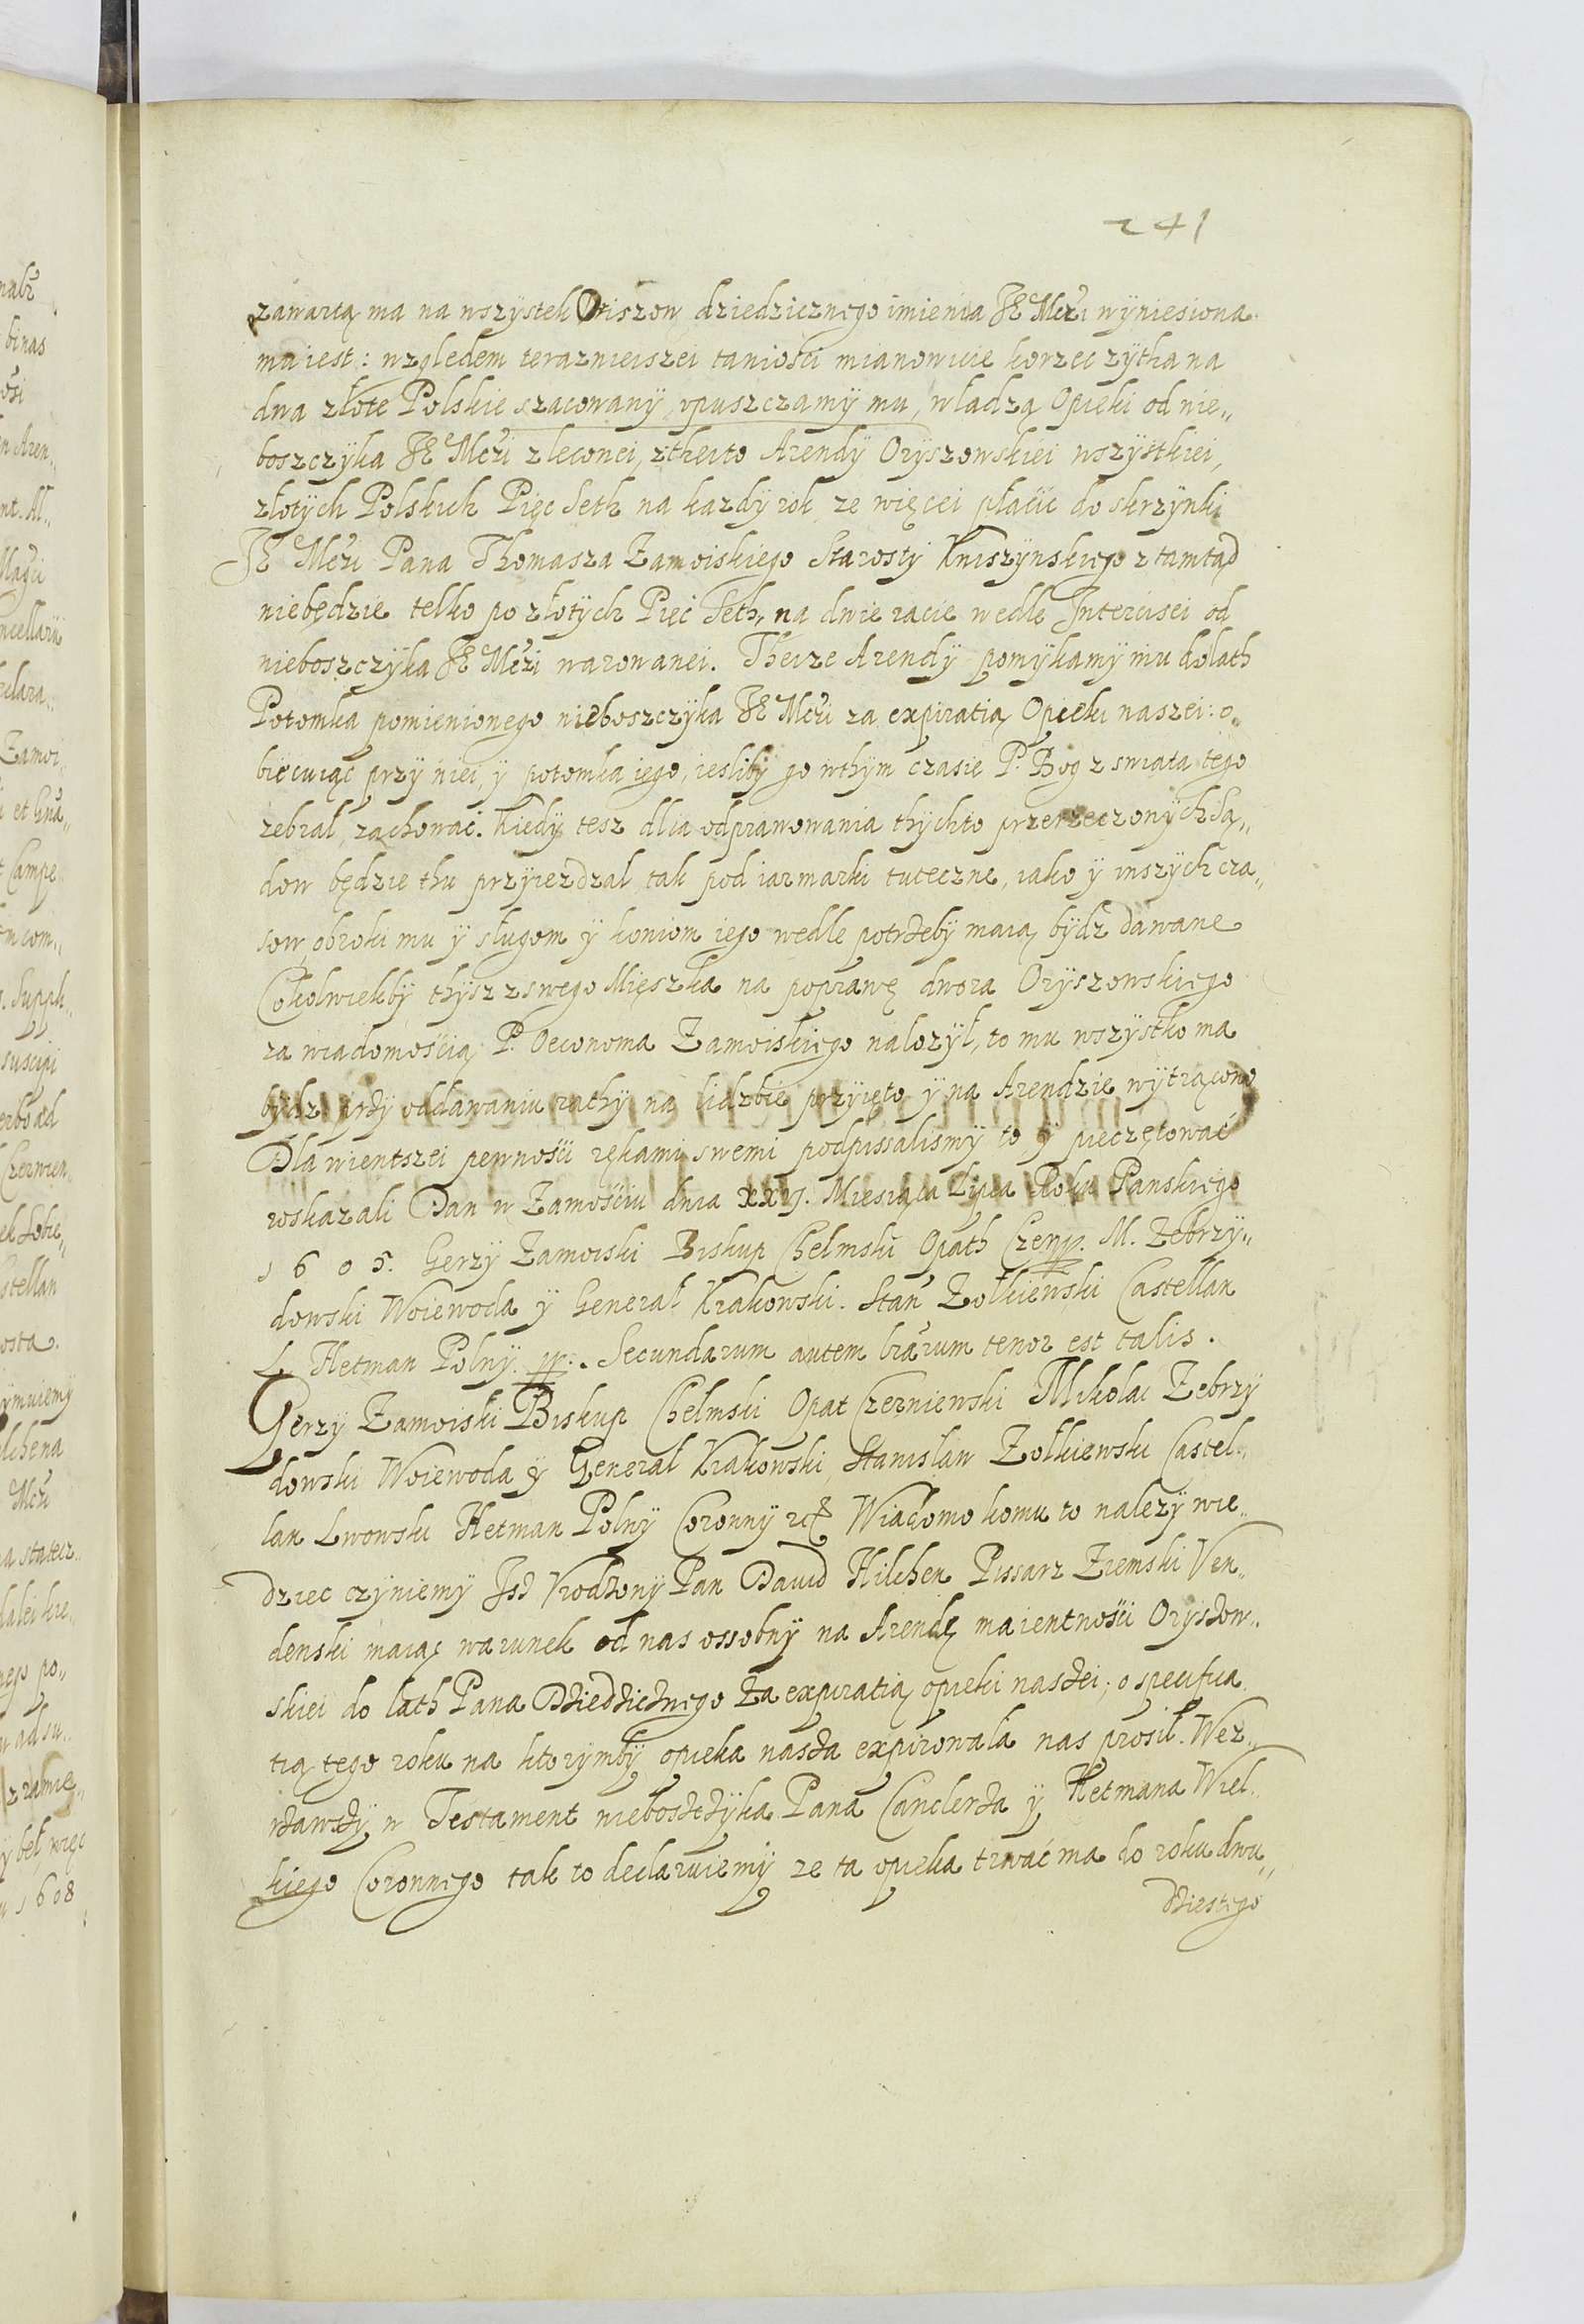 241
zawartą ma na wszystek Oriszow dziedzicznego imienia JE Mczi wyniesiona
ma iest: względem teraznieiszei taniości mianowicie korzec zytha na
dwa złote Polskie szacowany, opuszczamy mu, władzą Opieki od nie„
boszczyka JE Mczi zleconei, ztheito Arendy Oryszowskiei wszystkiei,
złotych Polskich Pięc Seth na kazdy rok, ze więcei płacic do skrzynki
JE Mczi Pana Thomasza Zamoiskiego Starosty Kniszynskiego ztamtąd
niebędzie telko po złotych Pięć Seth, na dwie racie wedle Intercisei od
nieboszczyka JE Mczi warowanei. Theize Arendy pomykamy mu dolath
Potomka pomienionego nieboszczyka JE Mczi za expiratią Opieki naszei: o„
biecuiąc przy niei, y potomka iego, iesliby go wthym czasie P. Bog z swiata tego
zebral, zachować. Kiedy tesz dlia odprawowania thychto przerzeczonych Są„
dow będzie thu przyiezdzal, tak pod iarmarki tuteczne, iako y inszych cza„
sow, obroki mu y sługom y koniom iego wedle potrzeby maią bydz dawane
Cokolwiekby thysz z swego Mięszka na poprawę dwora Oryszowskiego
za wiadomoscią P. Oeconoma Zamoiskiego nalozył, to mu wszystko ma
bydz przy oddawaniu rathy na lidzbie przyięto y na Arendzie wytrącono
Dla wientszei pewności rękami swemi podpissalismy to y pieczętować
roskazali Dan w Zamościu dnia xxvj. Miesiąca Lipca Roku Panskiego
1605. Gerzy Zamoiski Biskup Chelmski Opath Czerw. M. Zebrzy„
dowski Woiewoda y General Krakowski. Stan Zołkiewski Castellan
L Hetman Polny. pp. Secundarum autem lrarum tenor est talis.
Gerzy Zamoiski Biskup Chelmski Opat Czerwienski Mikolai Zebrzy
dowski Woiewoda y General Krakowski, Stanislaw Zołkiewski Castel„
lan Lwowski Hetman Polny Coronny etc Wiadomo komu to nalezy wie„
dziec czyniemy Isz Vrodzony Pan Dauid Hilchen Pissarz Ziemski Ven„
denski maiąc warunek od nas ossobny na Arendę maientnosci Oryszow„
skiei do lath Pana Dziedzicznego Za expiratią opieki naszei; o specifica
tią tego roku na ktorymby opieka nasza expirowala nas prosił. Wez„
rzawszy w Testament nieboszczyka Pana Canclerza y Hetmana Wiel„
kiego Coronnego tak to declaruiemy ze ta opieka trwać ma do roku dwu„
dziestego